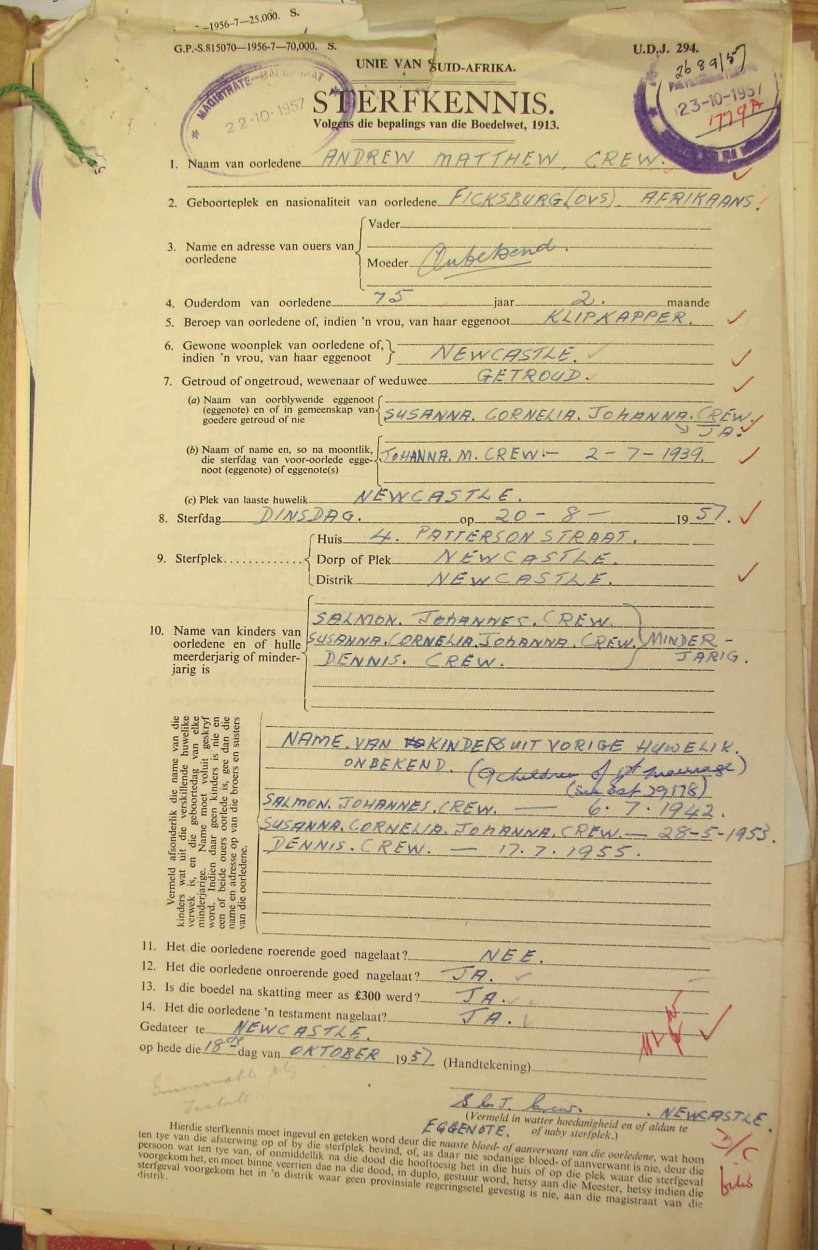 —1956-7—25,000. S.
G.P.-S.815070—1956-7—70,000. S.
U.D.J. 294.
UNIE VAN SUID-AFRIKA.
2689/57
MAGISTRATE-MAGISTRAAT
22-10-1957
23-10-1957
1779A
STERFKENNIS.
Volgens die bepalings van die Boedelwet, 1913.
1. Naam van oorledene ANDREW MATTHEW CREW.
2. Geboorteplek en nasionaliteit van oorledene FICKSBURG (OVS). AFRIKAANS.
3. Name en adresse van ouers van oorledene
Vader
Moeder Onbekend.
4. Ouderdom van oorledene 75 jaar 2. maande
5. Beroep van oorledene of, indien 'n vrou, van haar eggenoot KLIPKAPPER.
6. Gewone woonplek van oorledene of, indien 'n vrou, van haar eggenoot NEWCASTLE.
7. Getroud of ongetroud, wewenaar of weduwee GETROUD.
(a) Naam van oorblywende eggenoot
(eggenote) en of in gemeenskap van
goedere getroud of nie SUSANNA. CORNELIA. JOHANNA. CREW.
JA.
(b) Naam of name en, so na moontlik,
die sterfdag van voor-oorlede egge-
noot (eggenote) of eggenote(s) JOHANNA. M. CREW. — 2-7-1939.
(c) Plek van laaste huwelik NEWCASTLE.
8. Sterfdag DINSDAG. op 20-8- 1957.
9. Sterfplek
Huis 4. PATTERSON STRAAT.
Dorp of Plek NEWCASTLE.
Distrik NEWCASTLE.
10. Name van kinders van
oorledene en of hulle
meerderjarig of minder-
jarig is
SALMON. JOHANNES. CREW.
SUSANNA. CORNELIA. JOHANNA. CREW. MINDER-
DENNIS. CREW. JARIG.
Vermeld afsonderlik die name van die
kinders wat uit die verskillende huwelike
verwek is, en die geboortedag van elke
minderjarige. Name moet voluit geskryf
word. Indien daar geen kinders is nie en
een of beide ouers oorlede is, gee dan die
name en adresse op van die broers en susters
van die oorledene.
NAME. VAN KINDERS UIT VORIGE HUWELIK.
ONBEKEND. (9 children of 1st marriage)
(see est 29178)
SALMON. JOHANNES. CREW. — 6.7.1942.
SUSANNA. CORNELIA. JOHANNA. CREW. — 28-5-1953.
DENNIS. CREW. — 17.7.1955.
11. Het die oorledene roerende goed nagelaat? NEE.
12. Het die oorledene onroerende goed nagelaat? JA.
13. Is die boedel na skatting meer as £300 werd? JA.
14. Het die oorledene 'n testament nagelaat? JA.
Gedateer te NEWCASTLE.
op hede die 18de dag van OKTOBER 1957. (Handtekening)
S.C.J. Crew. NEWCASTLE.
(Vermeld in watter hoedanigheid en of aldan te
EGGENOTE. of naby sterfplek.)
Hierdie sterfkennis moet ingevul en geteken word deur die naaste bloed- of aanverwant van die oorledene, wat hom
ten tye van die afsterwing op of by die sterfplek bevind, of, as daar nie sodanige bloed- of aanverwant is nie, deur die
persoon wat ten tye van, of onmiddellik na die dood die hooftoesig het in die huis of op die plek waar die sterfgeval
voorgekom het, en moet binne veertien dae na die dood, in duplo, gestuur word, hetsy aan die Meester, hetsy indien die
sterfgeval voorgekom het in 'n distrik waar geen provinsiale regeringsetel gevestig is nie, aan die magistraat van die
distrik.